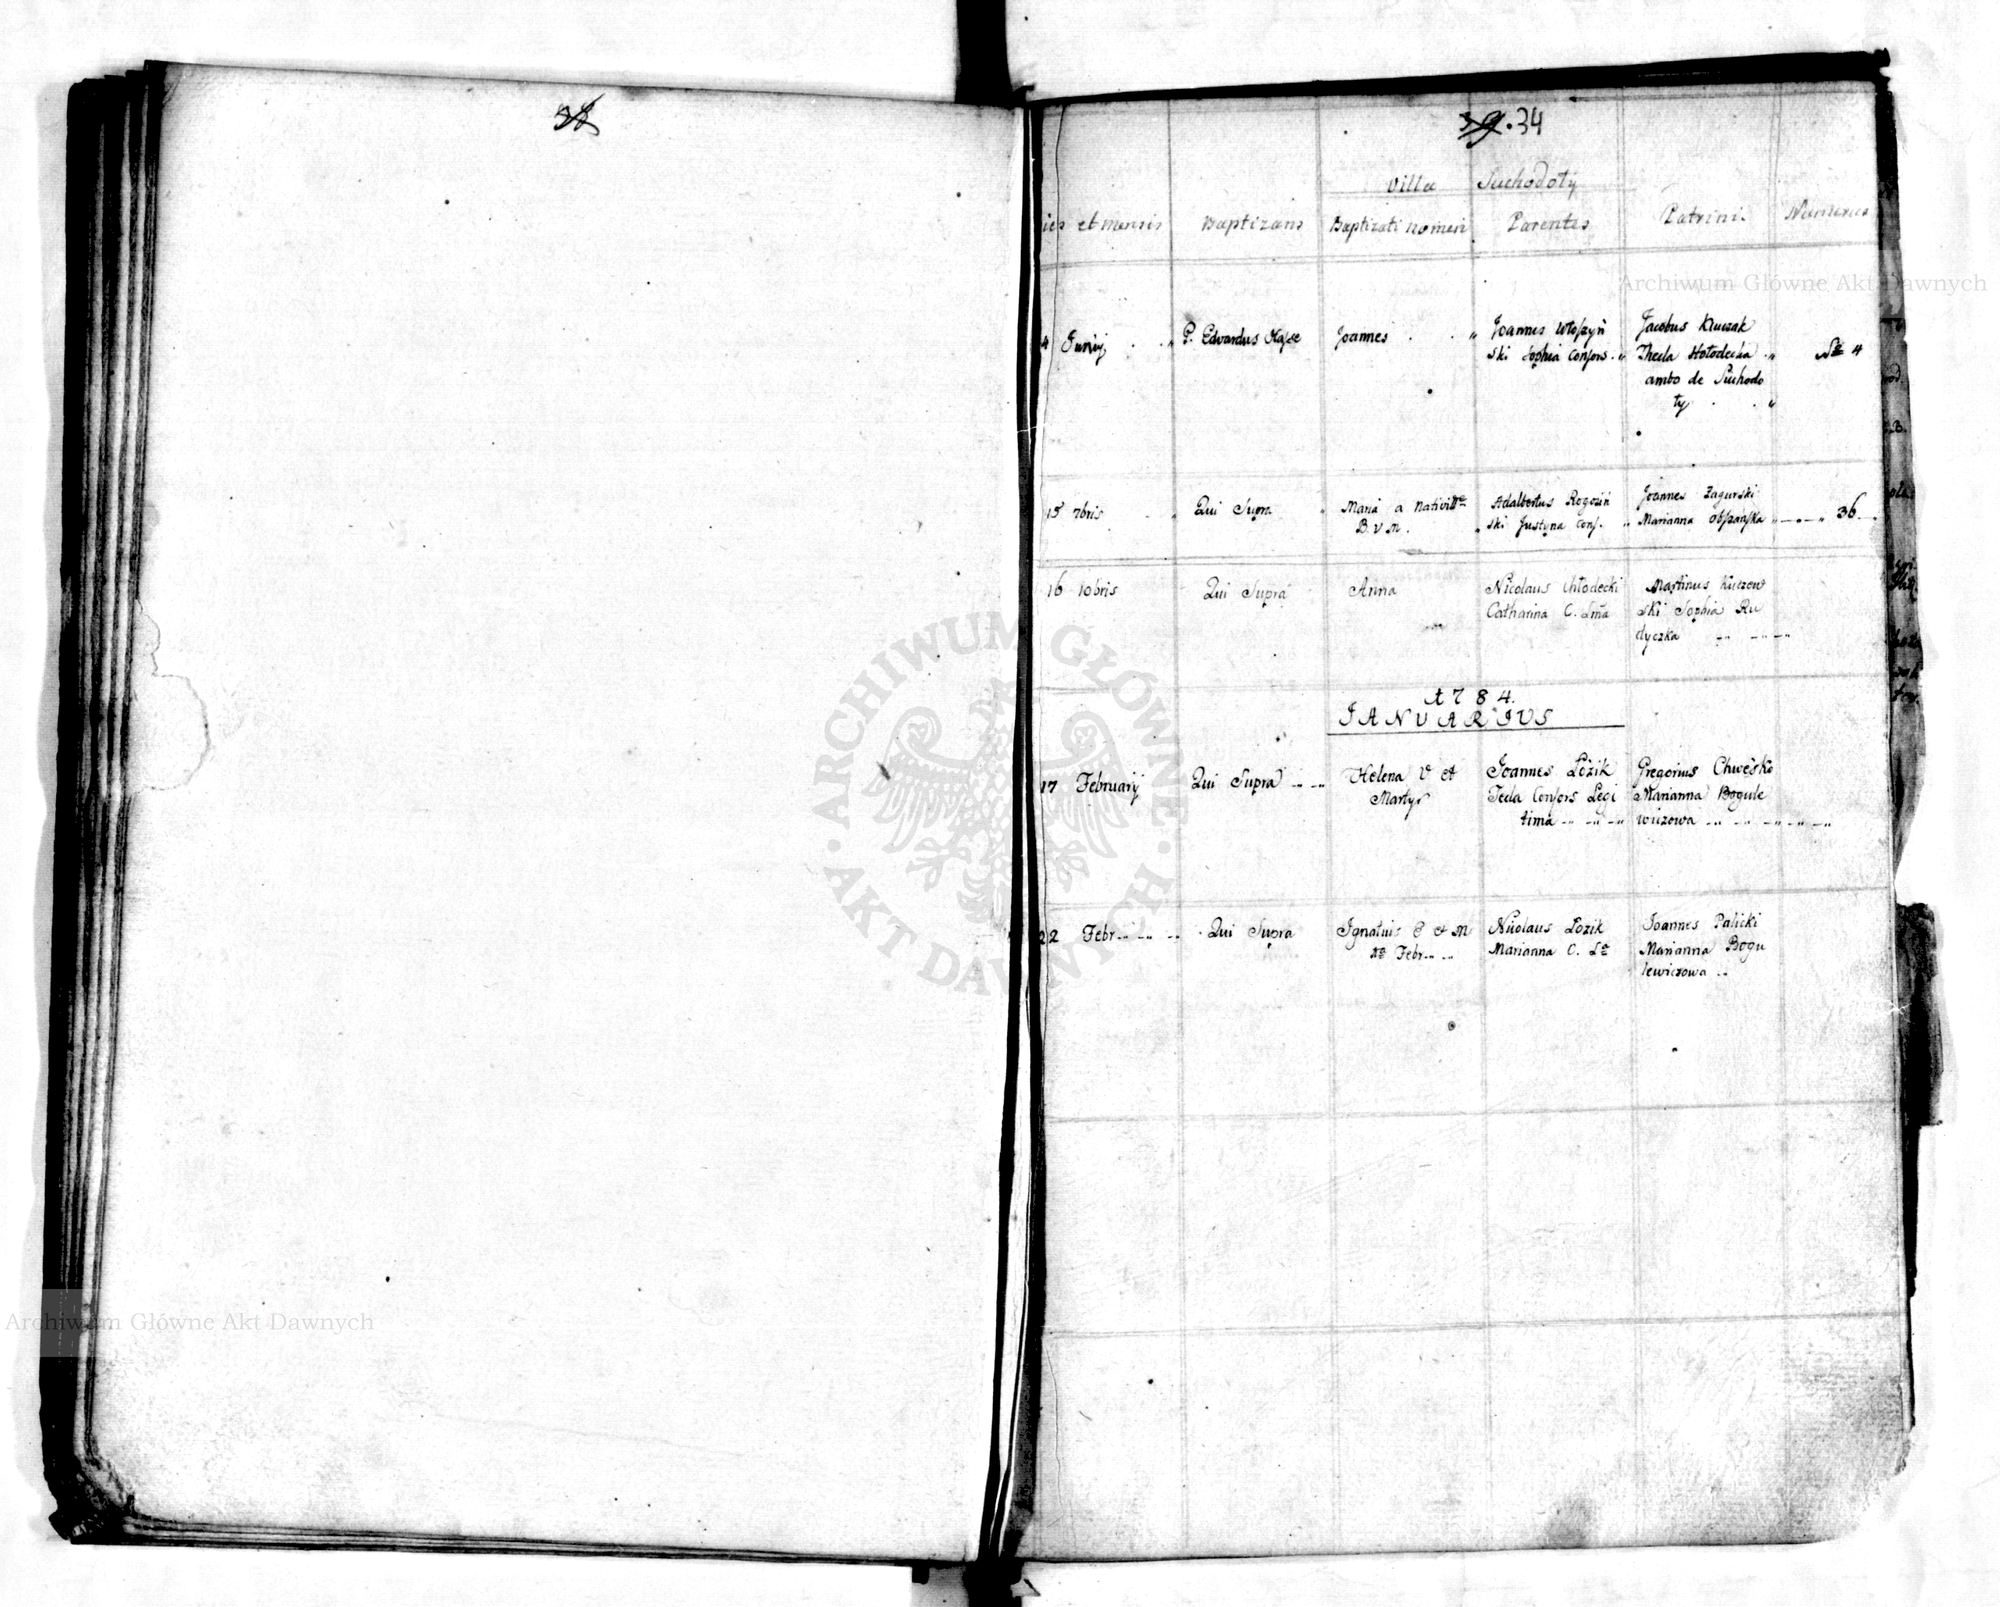 39. 34
Villa Suchodoły
ies et mensis Baptizans Baptizati nomen Parentes Patrini. Numerus
4 Junij P. Edvardus Joannes Joannes Włoszyń
ski Sophia Consors. Jacobus Kluczak
Thecla Hołodecka
ambo de Suchodo
ły
No 4
15 7bris Qui Supra Maria a Nativitte
B. V. M. Adalbertus Rogoziń
ski Justyna Cons. Joannes Zagurski
Marianna 36
16 10bris Qui Supra Anna Nicolaus Chłodecki
Catharina C. Lma Martinus Kuczew
ski Sophia Ru
dyczka
1784.
IANUARIUS
17 February Qui Supra Helena V et
Martyr Joannes Łozik
Tecla Consors Legi
tima Gregorius Chwesko
Marianna Bogule
wiczowa
22 Febr Qui Supra Ignatius E et M
Febr Nicolaus Łozik
Marianna C. La Joannes Palicki
Marianna Bogu
lewiczowa
Archiwum Główne Akt Dawnych
ARCHIWUM GŁÓWNE
AKT DAWNYCH
Archiwum Główne Akt Dawnych